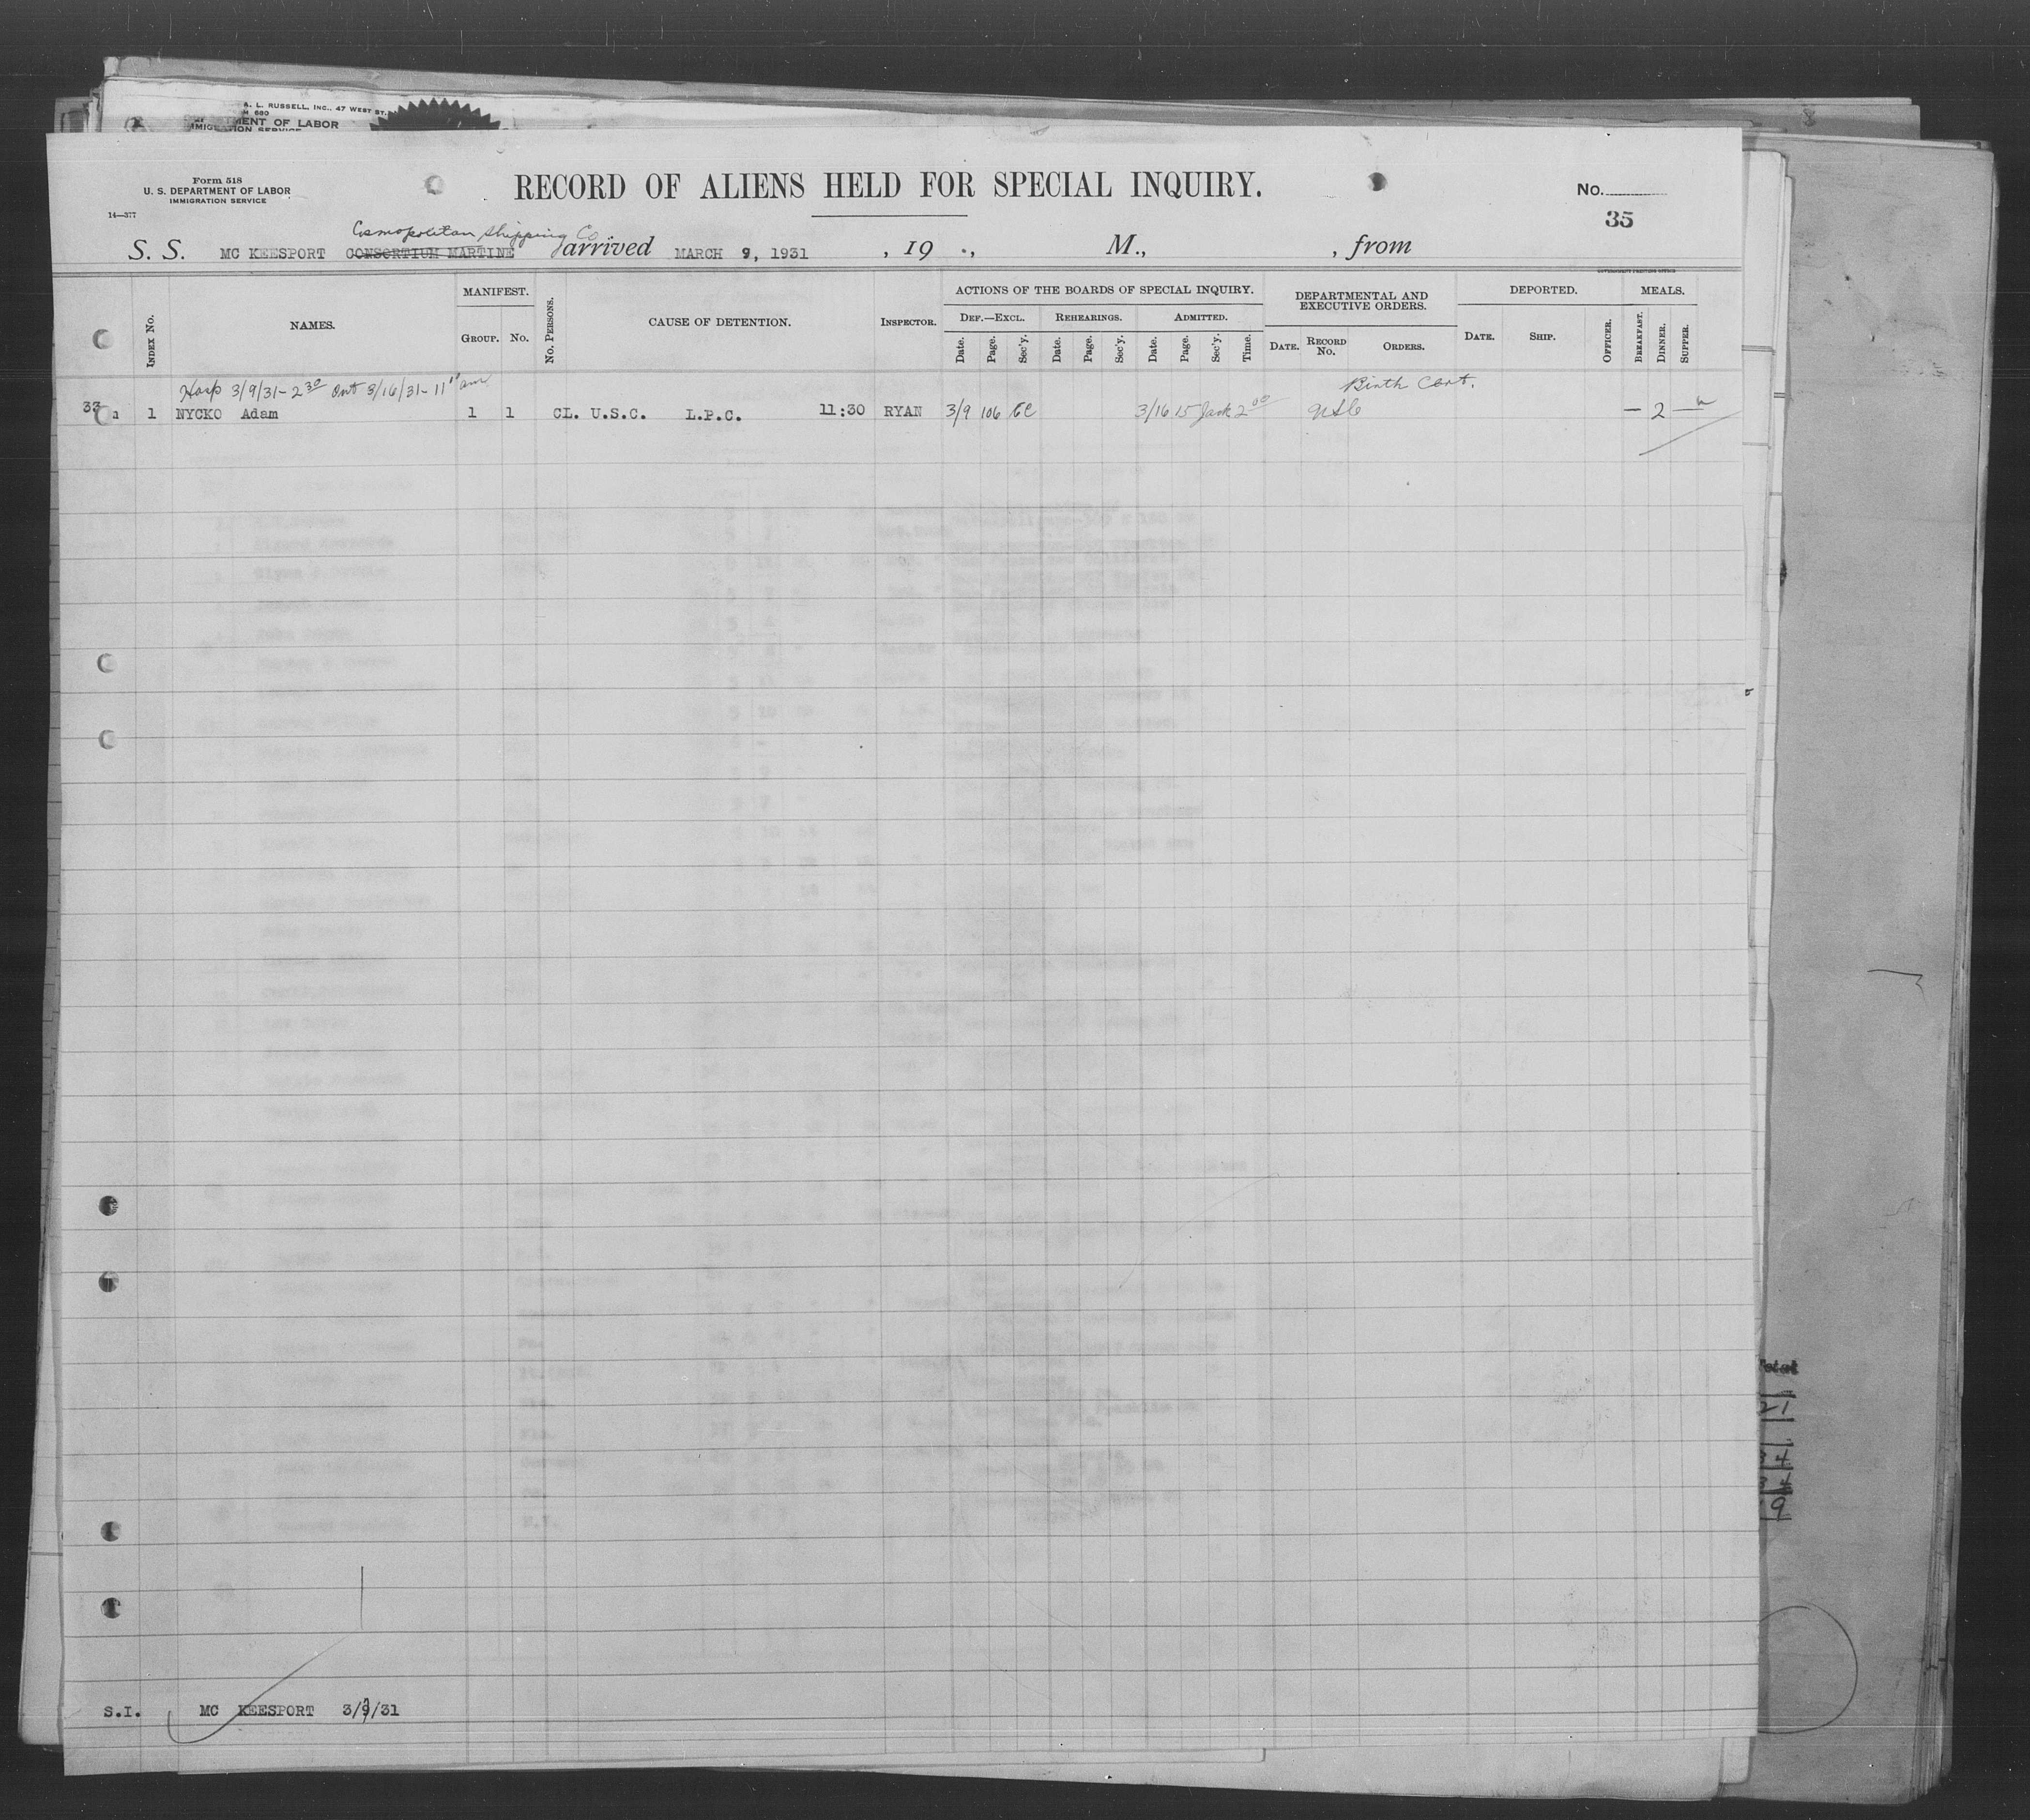 A. L. RUSSELL, INC., 47 WEST ST.
MENT OF LABOR
Form 518
U. S. DEPARTMENT OF LABOR
IMMIGRATION SERVICE
14—377
RECORD OF ALIENS HELD FOR SPECIAL INQUIRY.
No.
35
Cosmopolitan Shipping Co
S. S. MC KEESPORT CONSORTIUM MARTINE arrived MARCH 9, 1931 , 19 ., M., , from
GOVERNMENT PRINTING OFFICE
INDEX No. NAMES. MANIFEST. GROUP. No. No. PERSONS. CAUSE OF DETENTION. INSPECTOR. ACTIONS OF THE BOARDS OF SPECIAL INQUIRY. DEPARTMENTAL AND EXECUTIVE ORDERS. DEPORTED. MEALS.
DEF.—EXCL. REHEARINGS. ADMITTED.
Date. Page. Sec'y. Date. Page. Sec'y. Date. Page. Sec'y. Time. DATE. RECORD No. ORDERS. DATE. SHIP. OFFICER. BREAKFAST. DINNER. SUPPER.
Hosp 3/9/31 - 2 30 Out 3/16/31 - 11 am Birth Cert.
33 1 NYCKO Adam 1 1 CL. U.S.C. L.P.C. 11:30 RYAN 3/9 106 3/16 15 2 00 USC — 2 —
S.I. MC KEESPORT 3/9/31
Total